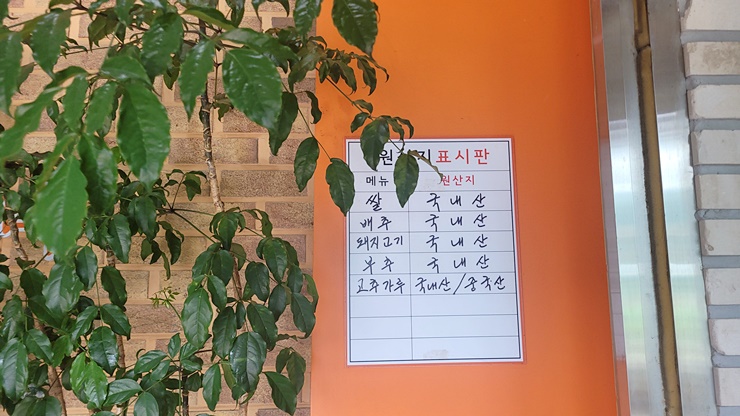 원산지표시판
메뉴 원산지
쌀 국내산
배추 국내산
돼지고기 국내산
부추 국내산
고추가루 국내산/중국산